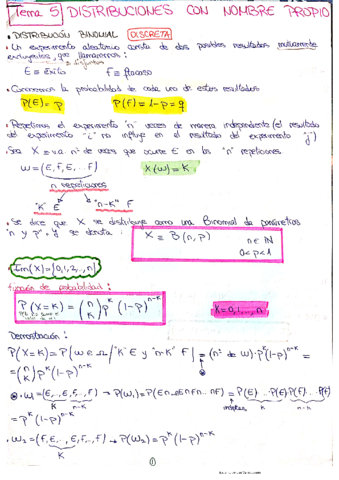 Tema 5 DISTRIBUCIONES CON NOMBRE PROPIO
• DISTRIBUCIÓN BINOMIAL (DISCRETA)
• Un experimento aleatorio consta de dos posibles resultados mutuamente
excluyentes, que llamaremos:
E ≡ éxito F ≡ fracaso
• Conocemos la probabilidad de cada uno de estos resultados
P(E) = p P(F) = 1-p = q
• Repetimos el experimento "n" veces de manera independiente (el resultado
del experimento "i" no influye en el resultado del experimento "j")
• Sea X ≡ v.a. nº de veces que ocurre E en las "n" repeticiones
w = (E, F, E, ... F) X(w) = K
n repeticiones
"K" E "n-K" F
• Se dice que X se distribuye como una Binomial de parámetros
"n y p" y se denota: X ≡ B(n, p) n ∈ ℕ
0 < p < 1
• Im(X) = {0, 1, 2, ..., n}
Función de probabilidad:
P(X = K) = (n K) p^K (1-p)^{n-K} K = 0, 1, ..., n
Demostración:
P(X=K) = P{w ∈ Ω / "K" E y "n-K" F} = (nº de w) · p^K (1-p)^{n-K} =
= (n K) p^K (1-p)^{n-K}
• w₁ = (E, ..., E, F, ..., F) → P(w₁) = P(E∩...∩E∩F∩...∩F) = P(E) ... P(E) P(F) ... P(F)
K n-K K n-K
= p^K (1-p)^{n-K}
• w₂ = (F, E, ..., E, F, ..., F) → P(w₂) = p^K (1-p)^{n-K}
K
1